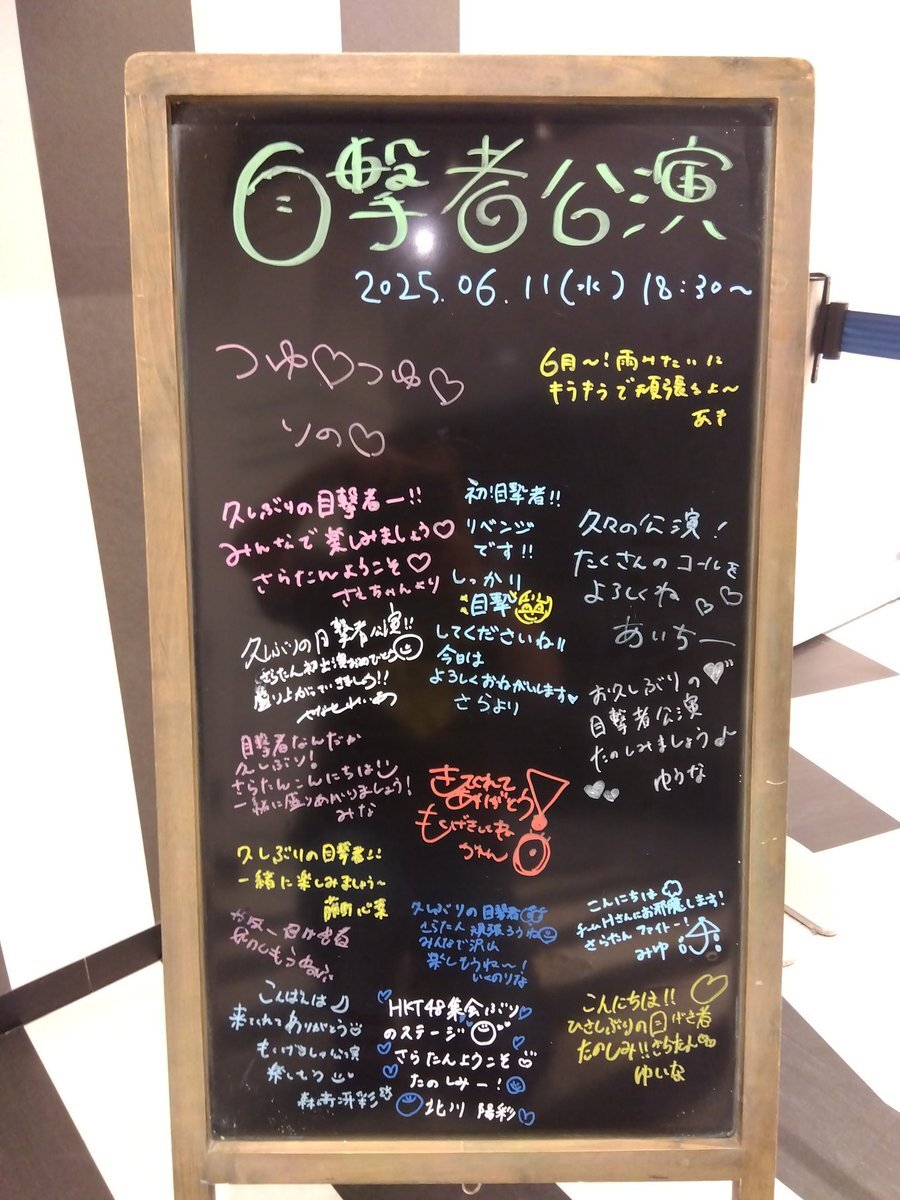 目撃者公演
2025.06.11(水) 18:30~
つゆ♡つゆ♡
りの♡
6月~!雨みたいに
キラキラで頑張るよ~
あき
久しぶりの目撃者ー!!
みんなで楽しみましょう♡
さらたんようこそ♡
さえちゃんより
初!目撃者!!
リベンジ
です!!
しっかり
目撃
してくださいね!!
今日は
よろしくおねがいします♥
さらより
久々の公演!
たくさんのコールを
よろしくね♡♡
あいちー
久しぶりの目撃者公演!!
さらたん初出演おめでとう
盛り上がっていきましょう!!
お久しぶりの
目撃者公演
たのしみましょう♪
ゆうな
目撃者なんだか
久しぶり!
さらたんこんにちは!
一緒に盛りあがりましょう!
みな
きてくれて
ありがとう!
久しぶりの目撃者!!
一緒に楽しみましょう~
心菜
久しぶりの目撃者
さらたん頑張ろうね
みんなで沢山
楽しもうね~!
いくのりな
こんにちは
チームHさんにお邪魔します!
さらたんファイトー!
みゆ
こんばんは♪
来てくれてありがとう
もくげきしゃ公演
楽しもう
森﨑冴彩
HKT48集会ぶり
のステージ
さらたんようこそ
たのしみー!
北川 陽彩
こんにちは!!
ひさしぶりの目げき者
たのしみ!!さらたん
ゆいな